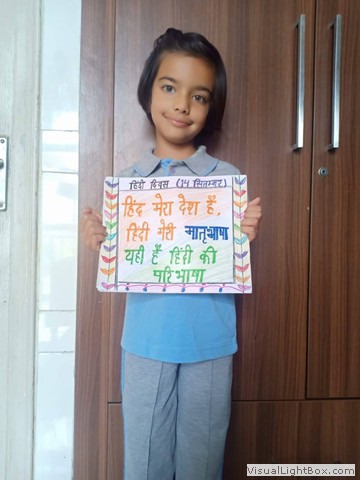 हिंदी दिवस (14 सितम्बर)
हिंद मेरा देश हैं,
हिंदी मेरी मातृभाषा
यही हैं हिंदी की
परिभाषा
VisualLightBox.com